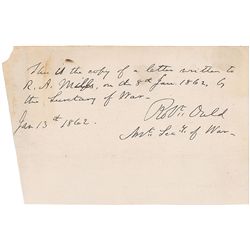 This is the copy of a letter written to
R. A. on the 8th Jan. 1862, by
the Secretary of War.
Robt. Ould
Asst. Secy. of War.
Jan 13th 1862.